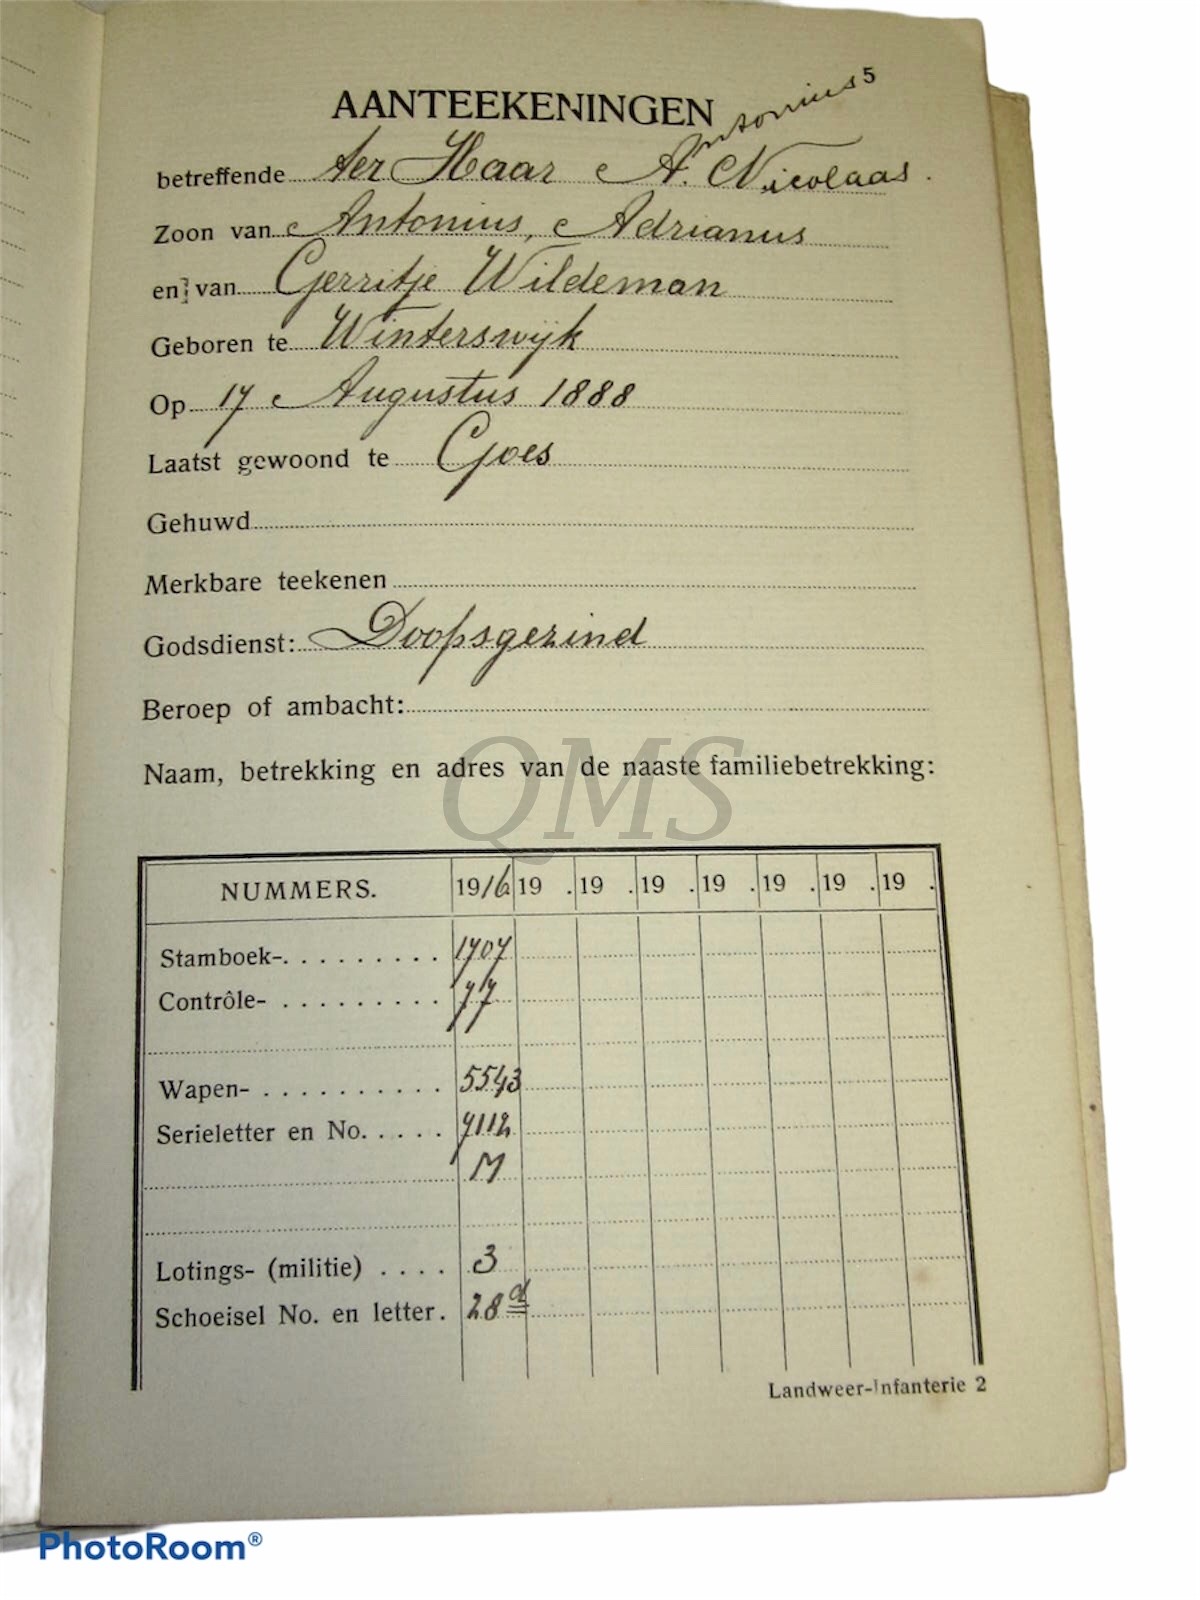 5
AANTEEKENINGEN
Antonius
betreffende ter Haar A. Nicolaas.
Zoon van Antonius, Adrianus
en van Gerritje Wildeman
Geboren te Winterswijk
Op 17 Augustus 1888
Laatst gewoond te Goes
Gehuwd
Merkbare teekenen
Godsdienst: Doopsgezind
Beroep of ambacht:
Naam, betrekking en adres van de naaste familiebetrekking:
QMS
NUMMERS. 1916 19 . 19 . 19 . 19 . 19 . 19 . 19 .
Stamboek-. . . . . . . . . . 1707
Contrôle- . . . . . . . . . 77
Wapen- . . . . . . . . . . 5543
Serieletter en No. . . . . 7112
M
Lotings- (militie) . . . . 3
Schoeisel No. en letter. 28 d
Landweer-Infanterie 2
PhotoRoom®